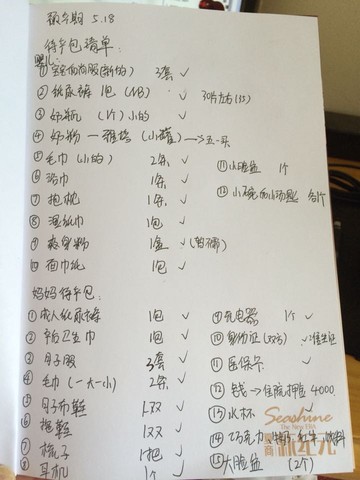 预产期 5.18
待产包清单:
婴儿:
① 宝宝内衣服(新的) 3套 ✓
② 纸尿裤 1包 (NB) ✓ 30片左右
③ 奶瓶 (1个) 小的 ✓
④ 奶粉 一 (小罐)
⑤ 毛巾 (小的) 2条 ✓
⑥ 浴巾 1条 ✓
⑦ 抱枕 1条 ✓
⑧ 湿纸巾 1包 ✓
⑨ 爽身粉 1盒 ✓
⑩ 面巾纸 1包 ✓
⑪ 小脸盆 1个
⑫ 小碗 小汤匙 各1个
妈妈待产包:
① 成人纸尿裤 1包 ✓
② 产妇卫生巾 1包 ✓
③ 月子服 3套 ✓
④ 毛巾 (一大一小) 2条 ✓
⑤ 月子布鞋 1双 ✓
⑥ 拖鞋 1双 ✓
⑦ 梳子 1把 ✓
⑧ 耳机 1个 ✓
⑨ 充电器 1个 ✓
⑩ 身份证 (双方) ✓
⑪ 医保卡 ✓
⑫ 钱 → 住院押金 4000
⑬ 水杯 ✓
⑭ 巧克力 红牛 饮料
⑮ 大脸盆 (2个)
Seashine
The New ERA